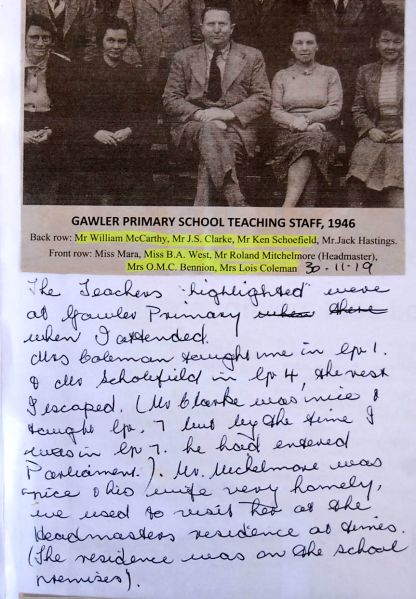 GAWLER PRIMARY SCHOOL TEACHING STAFF, 1946
Back row: Mr William McCarthy, Mr J.S. Clarke, Mr Ken Schoefield, Mr.Jack Hastings.
Front row: Miss Mara, Miss B.A. West, Mr Roland Mitchelmore (Headmaster),
Mrs O.M.C. Bennion, Mrs Lois Coleman 30-11-19
The Teachers "highlighted" were
at Gawler Primary when there
when I attended.
Mrs Coleman taught me in Gr 1.
& Mr Scholefield in Gr 4, the rest
I escaped. (Mr Clarke was nice &
taught Gr. 7 but by the time I
was in Gr 7. he had entered
Parliament.). Mr. Michelmore was
nice & his wife very homely,
we used to visit her at the
Headmasters residence at times.
(The residence was on the school
premises).